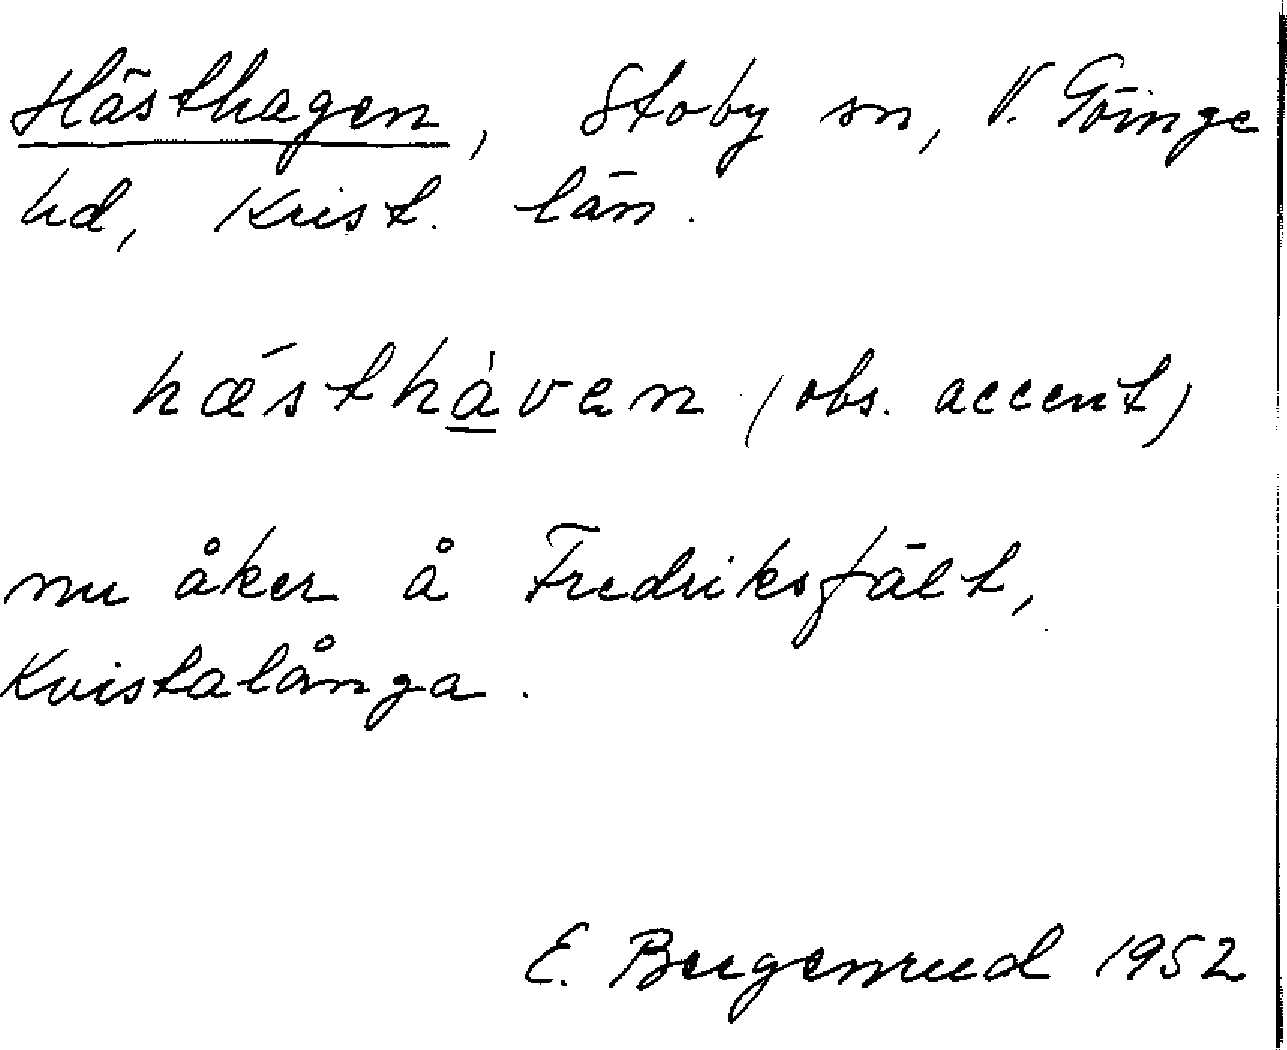 Hästhagen, Stoby sn, V. Göinge
hd, Krist. län.
hǽsthàven (obs. accent)
nu åker å Fredriksfält,
Kvistalånga.
E. Bergenrud 1952